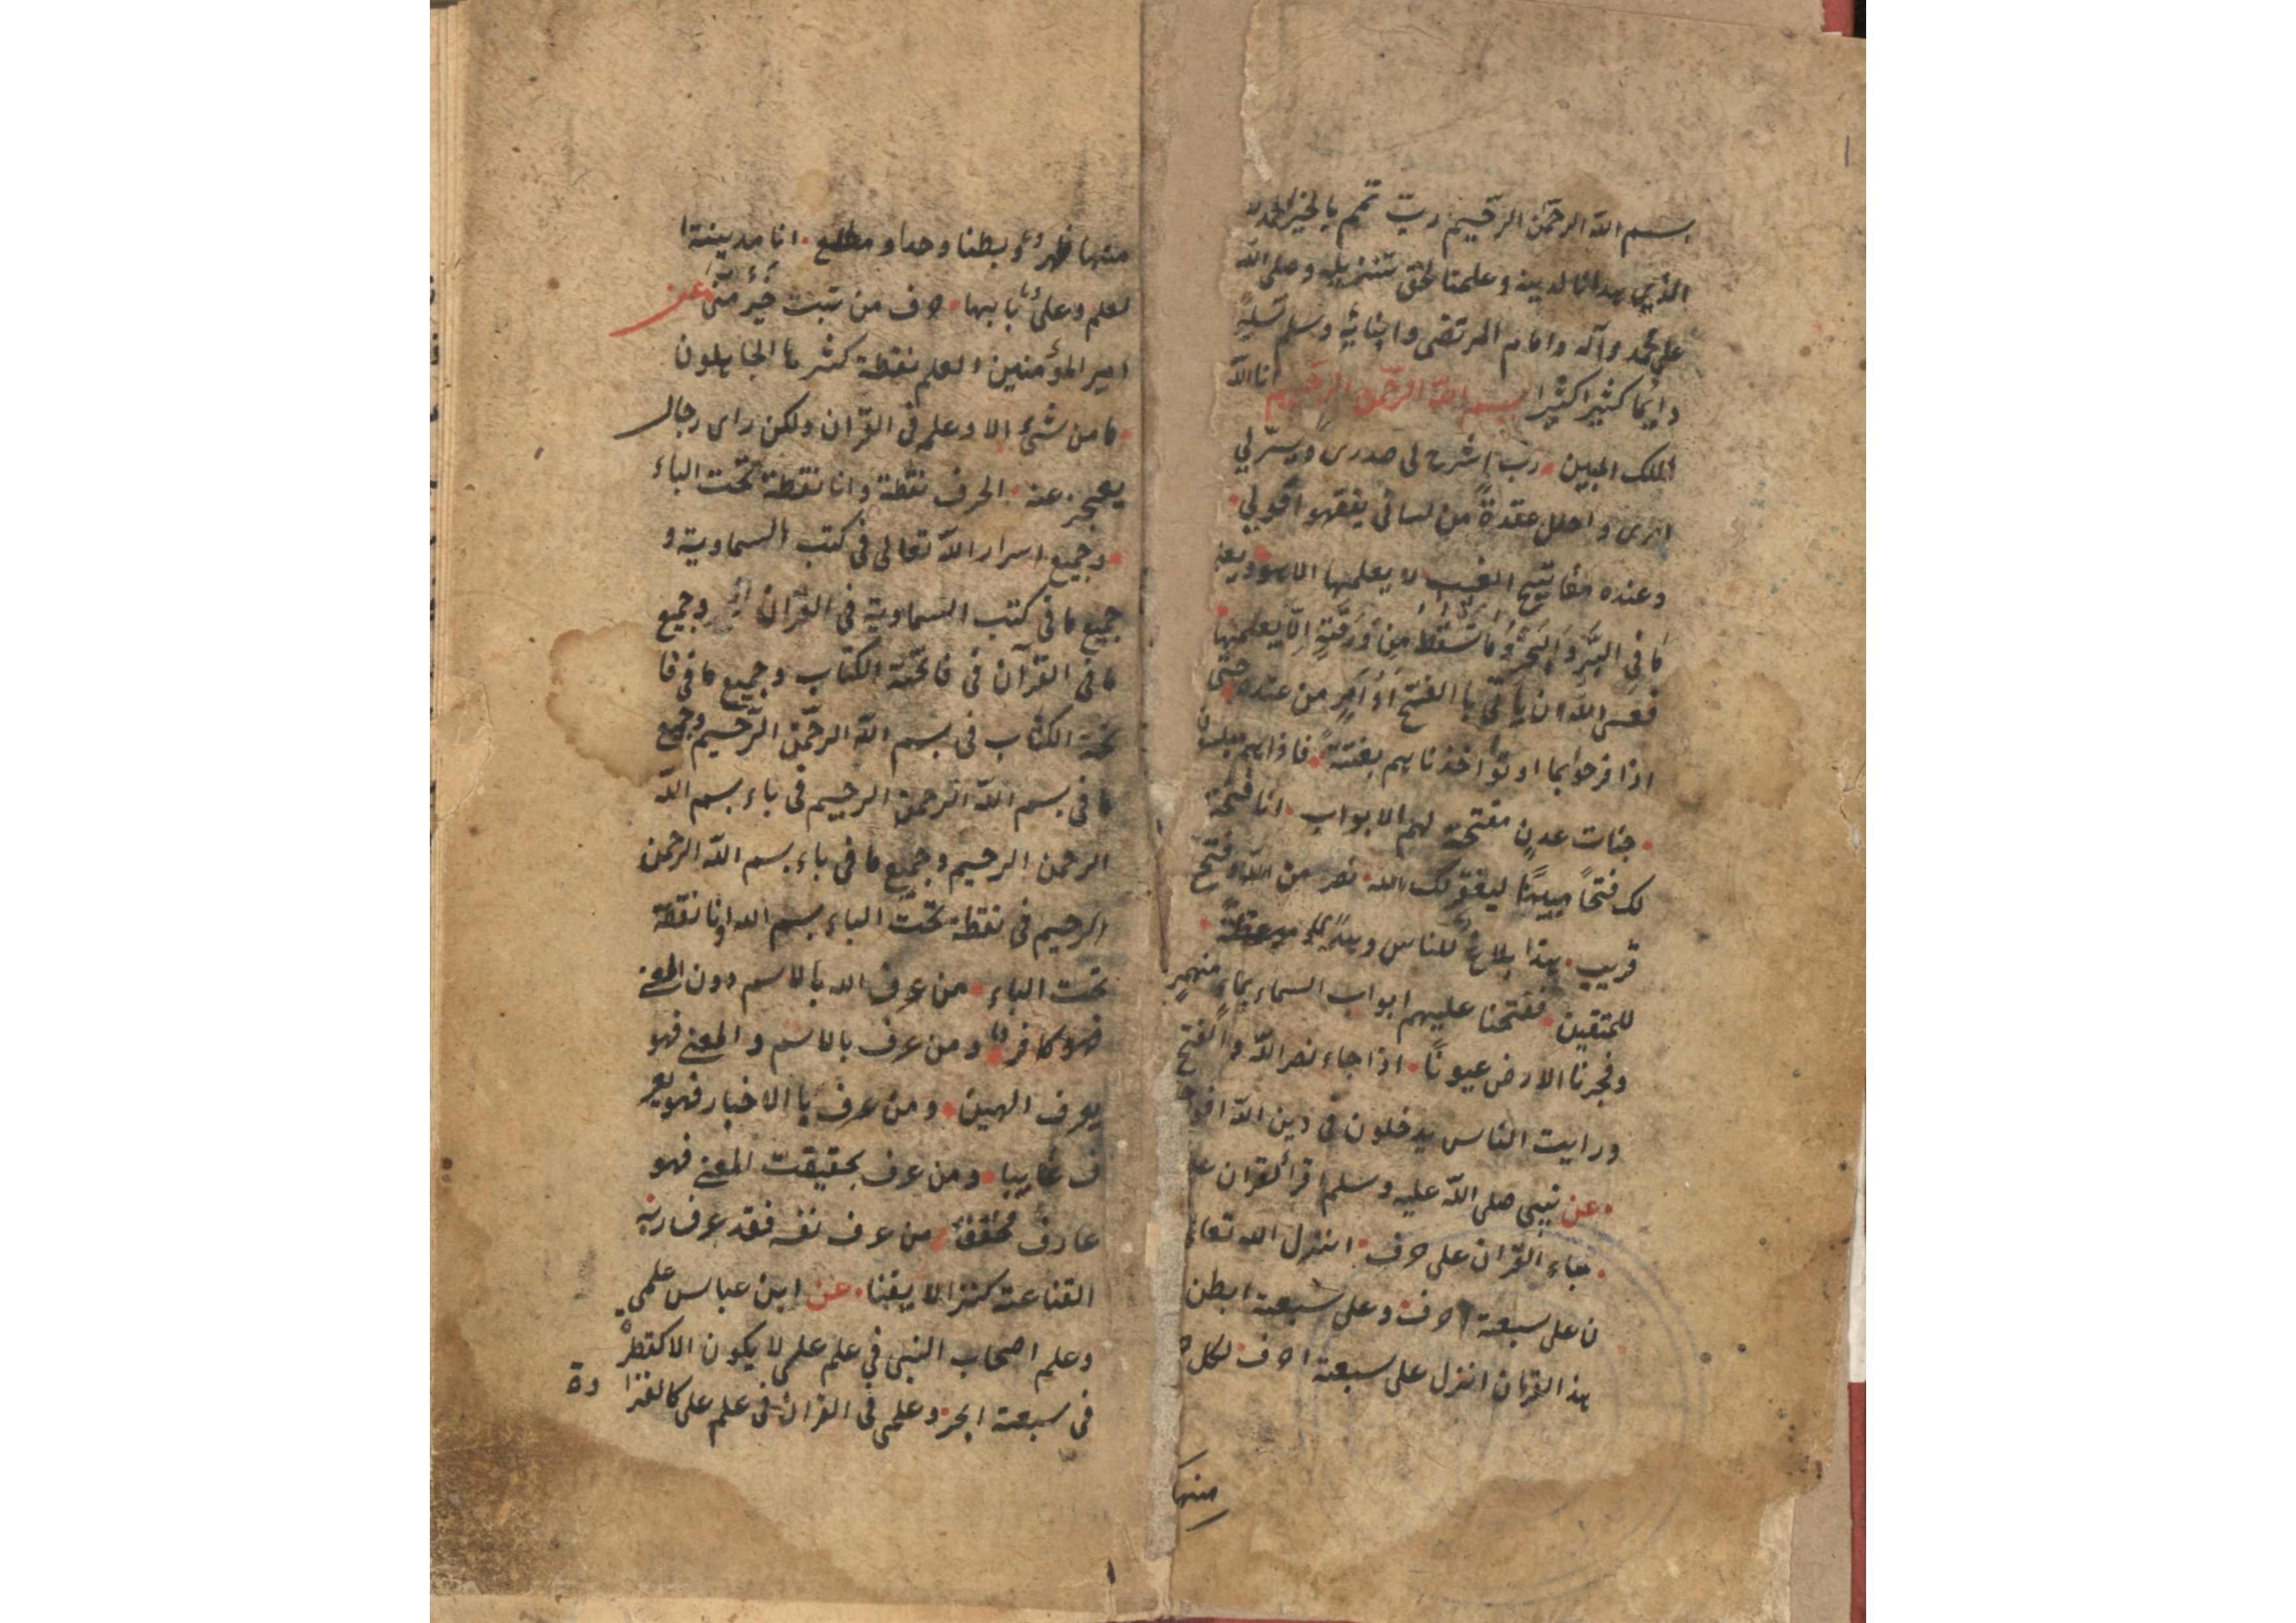 بسم الله الرحمن الرحيم ربّ تمم بالخير الحمد لله
الذي هدانا لدينه وعلمنا لحق تنزيله وصلى الله
على محمد وآله وامام المرتضى وابنائه وسلم تسليمً
دايمًا كثيرا كثيرا بسم الله الرحمن الرحيم انا الله
الملك المبين رب اشرح لى صدرى ويسّر لي
امرى و احلل عقدةً من لسانى يفقهو اقولي
وعنده مفاتيح الغيب لا يعلمها الا هو ويعلم
مَا فى البَرّ وَالبَحْرِ وَمَا تَسْقُطُ مِنْ وَرَقَةٍ اِلّا يَعلمها
فعسى الله ان يأتى با الفتح أَوْ اَمرٍ من عنده حتّى
اذا فرحوا بما اوتوُا اخذناهم بغتةً فاذاهم مبلسون
جنات عدنٍ مفتحة لهم الابواب انا فتحنا
لك فتحاً مبينًا ليغفر لك الله نصر من الله وفتح
قريب هذا بلاغٌ للناس وهدًى وموعظة
للمتقين ففتحنا عليهم ابواب السماء بماءٍ منهمرٍ
وفجرنا الارض عيونًا اذا جاء نصر الله والفتح
ورايت الناس يدخلون فى دين الله افوا
عن نبيى صلى الله عليه وسلم اقرأ لقران على
جاء القران على حرف انزل الله تعالى
ن على سبعة احرف وعلى سبعة ابطن
هذ القران انزل على سبعة احرف لكل
منها
منها ظهرٌ وبطنا وحدا و مطلع انا مدينة ا
لعلم وعلىٌ بابها حرف من تبت خيرٌ منّى عن
امير المؤمنين العلم نقطة كثرها الجاهلون
ما من شئ الا وعلم فى القران ولكن راى رجال
يعجز عنه الحرف نقطة وانا نقطة تحت الباء
وجميع اسرار الله تعالى فى كتب السماوية و
جميع ما فى كتب السماوية فى القران وجميع
ما فى القرآن فى فاتحة الكتاب وجميع ما فى فا
تحة الكتاب فى بسم الله الرحمن الرّحيم وجميع
ما فى بسم الله الرحمن الرحيم فى باء بسم الله
الرحمن الرحيم وجميع ما فى باء بسم الله الرحمن
الرحيم فى نقطة تحت الباء بسم الله وانا نقطة
تحت الباء من عرف الله بالاسم دون المعنى
فهو كافر ومن عرف بالاسم و المعنى فهو
يعرف الهين ومن عرف با الاخبار فهو يعر
ف غايبا ومن عرف بحقيقت المعنى فهو
عارف محقق من عرف نفسه فقد عرف ربه
القناعة كنز لا يفنا عن ابن عباس علمي
وعلم اصحاب النبى في علم على لا يكون الا كقطرة
فى سبعة ابحر وعلمى فى القران فى علم على كالغرا
رة